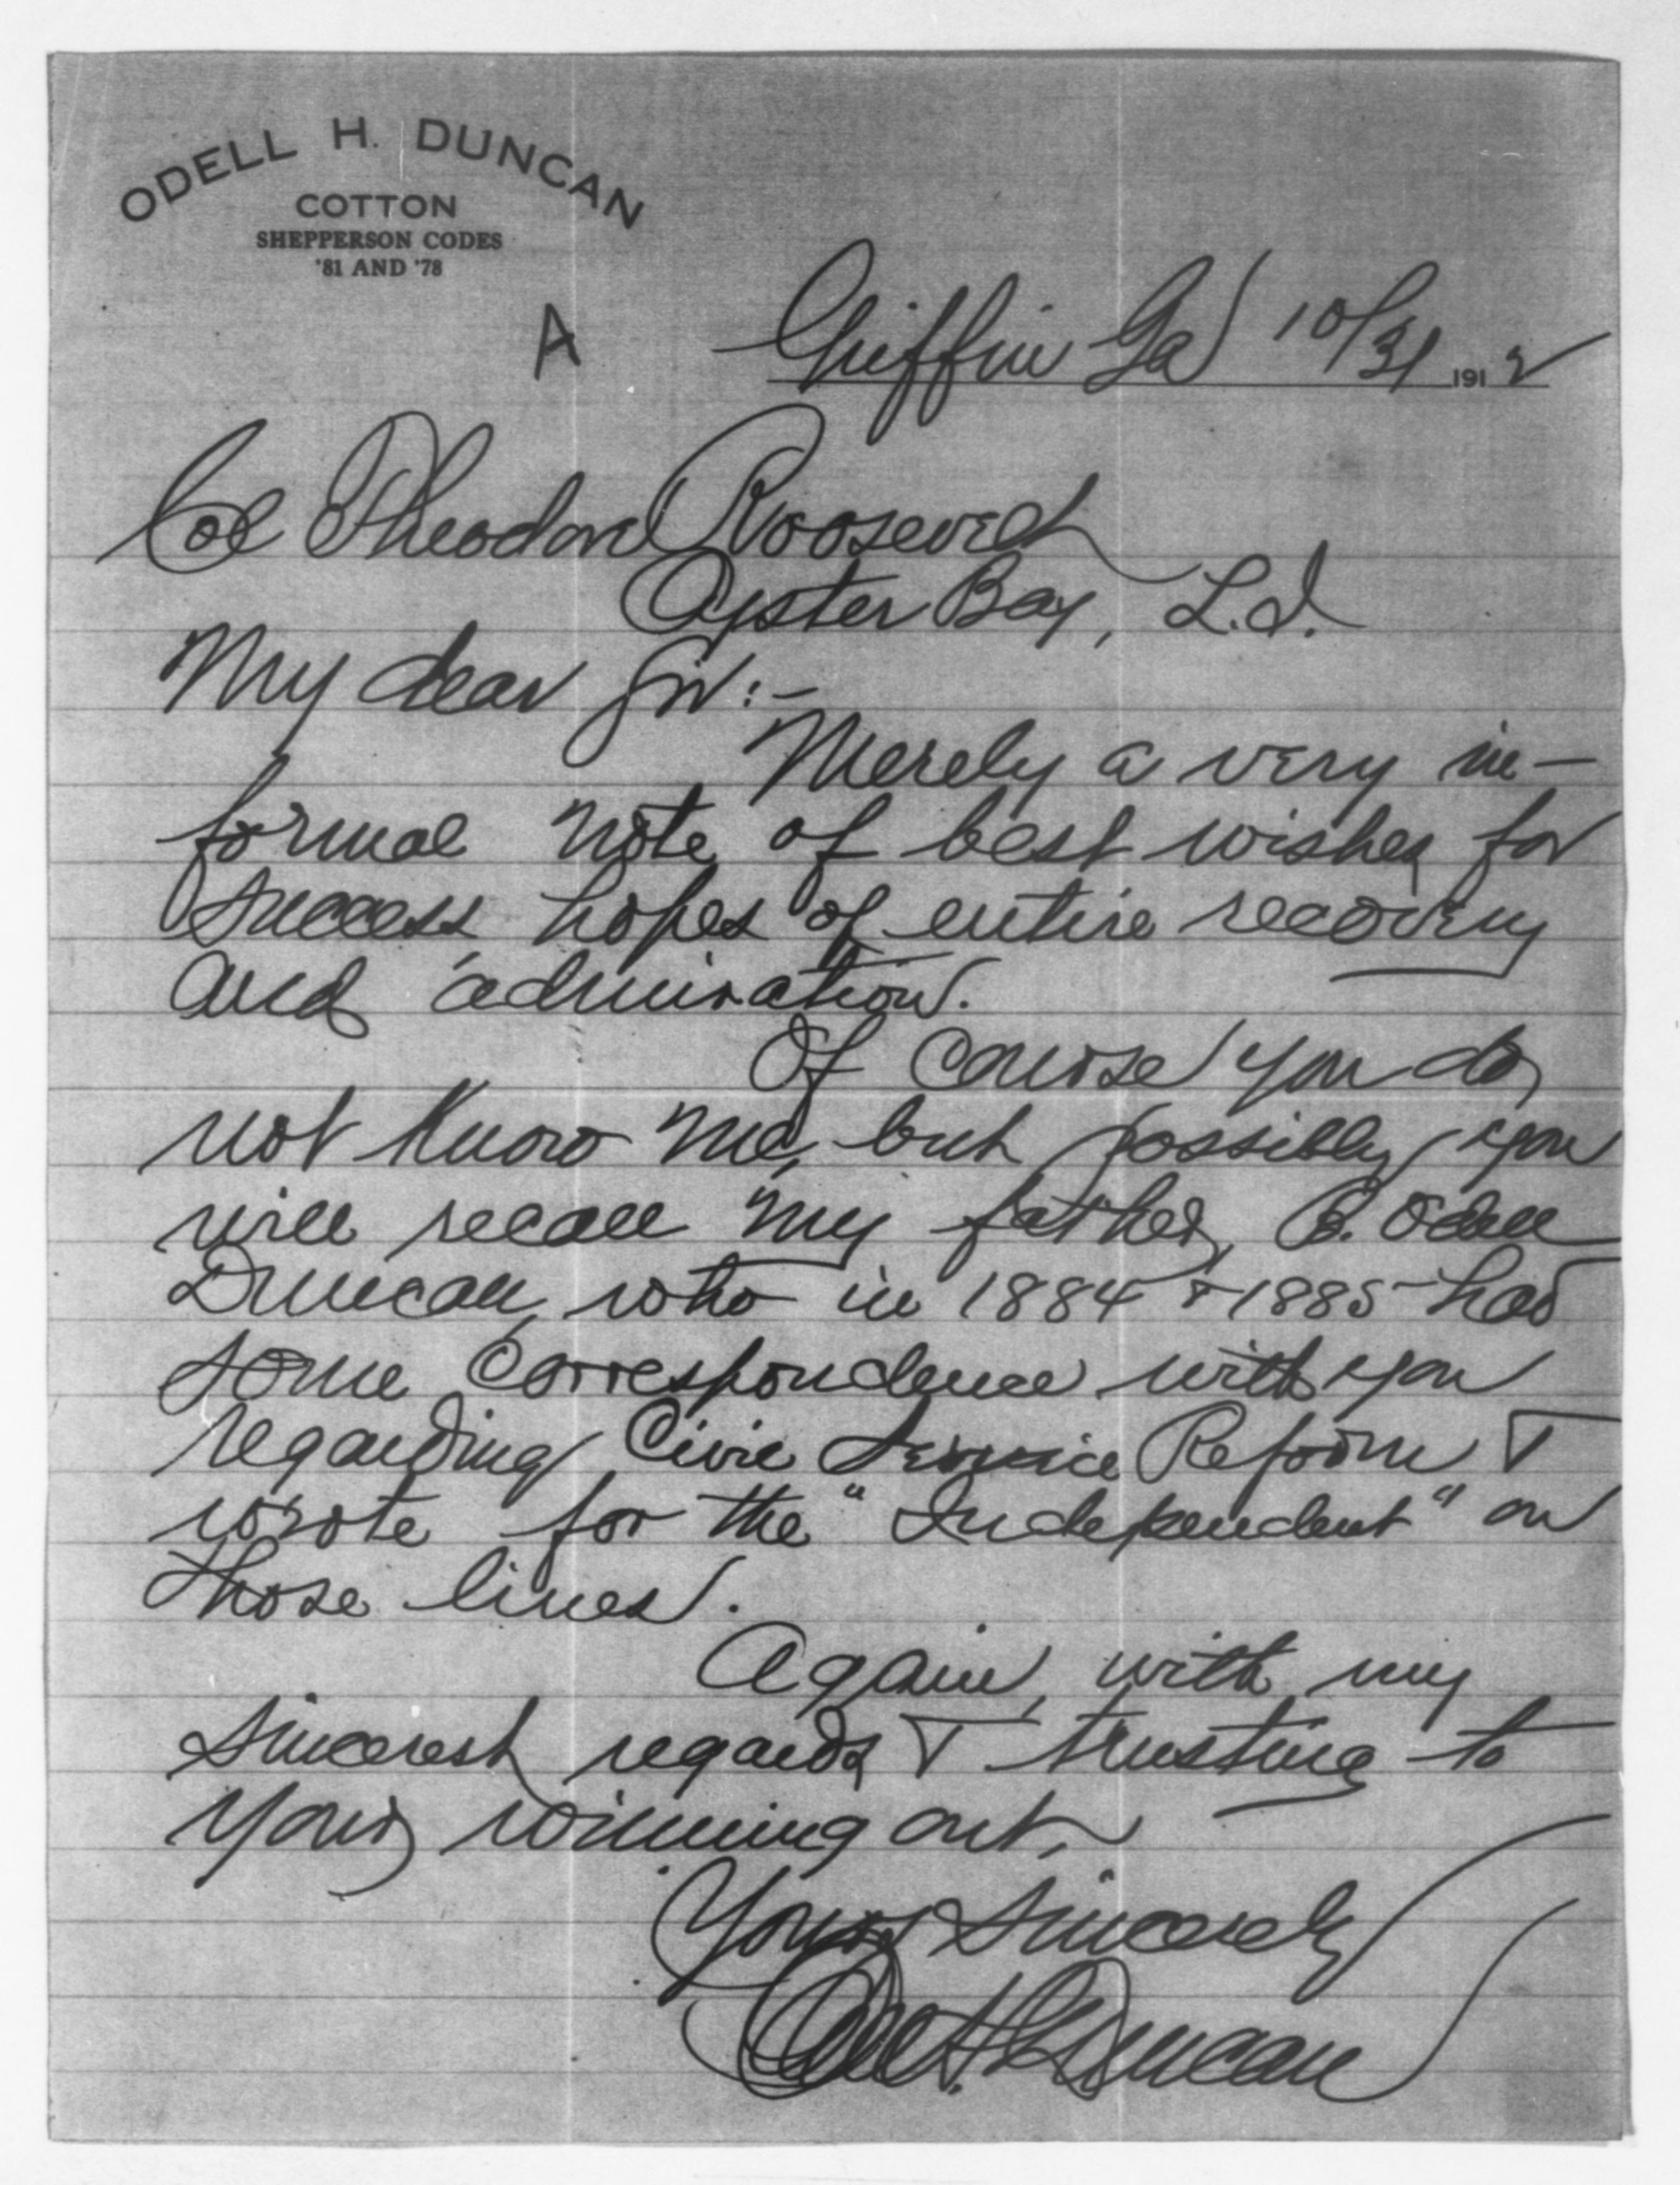 ODELL H. DUNCAN
COTTON
SHEPPERSON CODES
'81 AND '78
A
Griffin Ga 10/31 1912
Col Theodore Roosevelt
Oyster Bay, L.I.
My dear Sir:-
Merely a very in-
formal note of best wishes for
success, hopes of entire recovery
and admiration.
Of course you do
not know me, but possibly you
will recall my father, B. Odell
Duncan, who in 1884 & 1885 had
some correspondence with you
regarding Civil Service Reform &
wrote for the "Independent" on
those lines.
Again, with my
sincerest regards & trusting to
your winning out,
Yours Sincerely
Odell H. Duncan